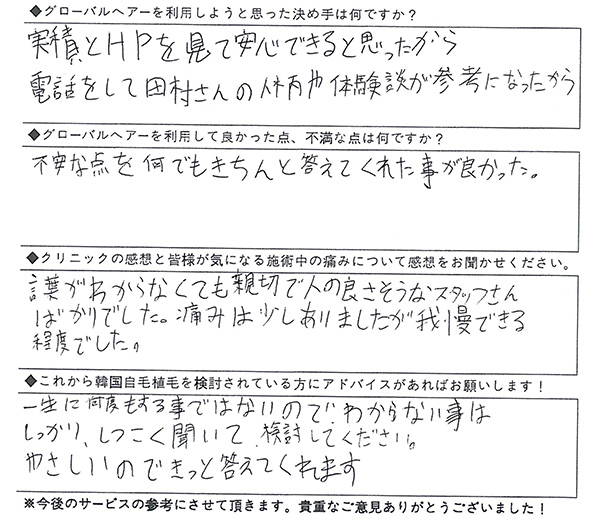 ◆グローバルヘアーを利用しようと思った決め手は何ですか？
実積とHPを見て安心できると思ったから
電話をして田村さんの人柄や体験談が参考になったから
◆グローバルヘアーを利用して良かった点、不満な点は何ですか？
不安な点を何でもきちんと答えてくれた事が良かった。
◆クリニックの感想と皆様が気になる施術中の痛みについて感想をお聞かせください。
言葉がわからなくても親切で人の良さそうなスタッフさん
ばかりでした。痛みは少しありましたが我慢できる
程度でした。
◆これから韓国自毛植毛を検討されている方にアドバイスがあればお願いします！
一生に何度もする事ではないので、わからない事は
しっかり、しつこく聞いて検討してください。
やさしいのできっと答えてくれます
※今後のサービスの参考にさせて頂きます。貴重なご意見ありがとうございました！